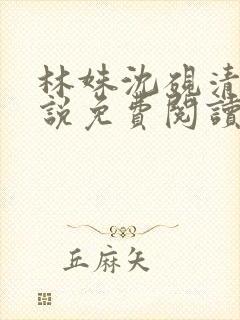 林姝沈硯清
說免費閱讀
丘麻矢